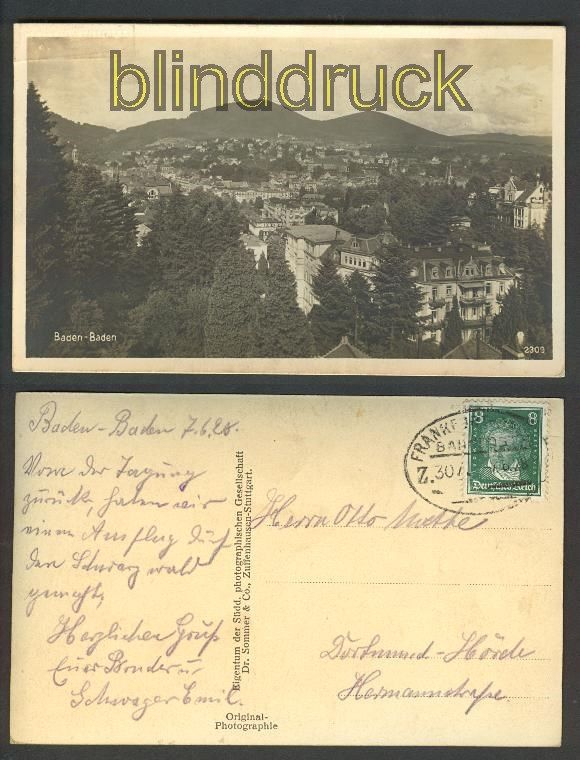 blinddruck
Baden-Baden
2309
Baden-Baden 7.6.28.
Von der Tagung
zurück, haben wir
einen Ausflug durch
den Schwarzwald
gemacht,
Herzlichen Gruß
Euer Bruder u
Schwager Emil.
Eigentum der Südd. photographischen Gesellschaft
Dr. Sommer & Co., Zuffenhausen-Stuttgart.
Original-
Photographie
FRANKF
BAHNPOST
Z.307
8 8
Deutsches Reich
Herrn Otto
Dortmund-Hörde
Hermannstraße.